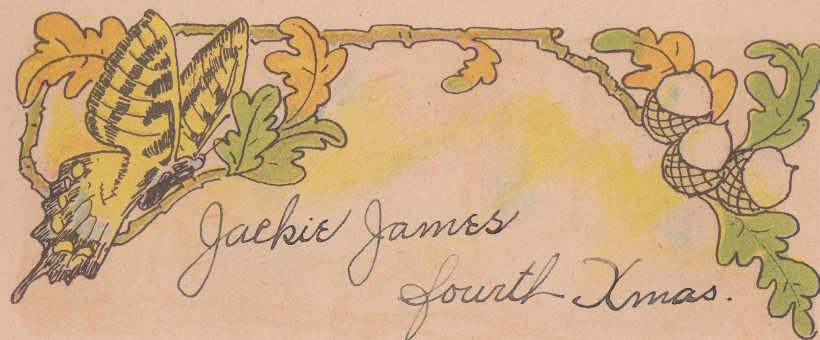 Jackie James
fourth Xmas.